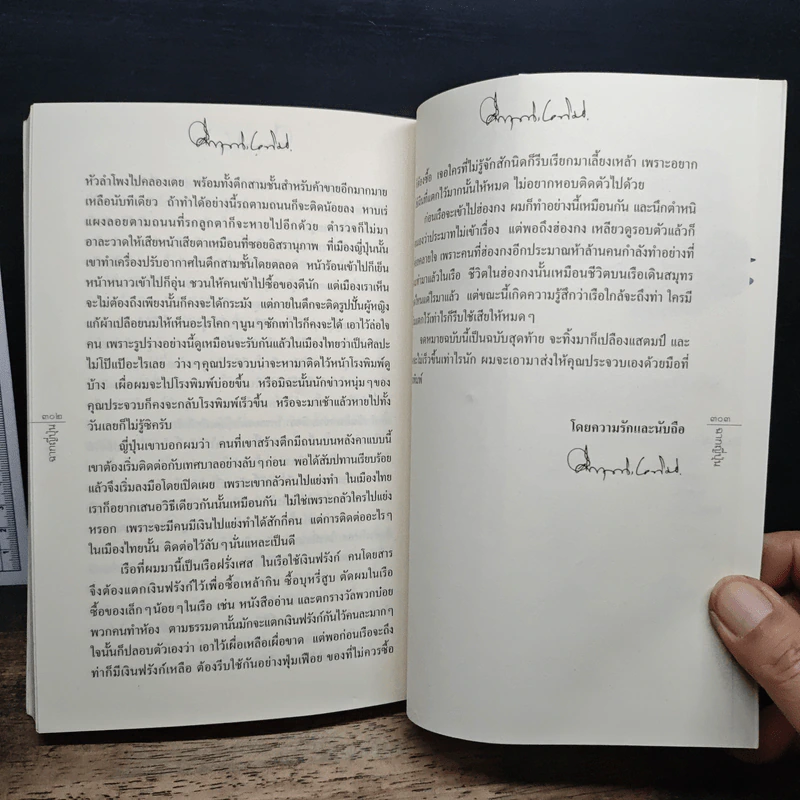 หัวลำโพงไปคลองเตย พร้อมทั้งตึกสามชั้นสำหรับค้าขายอีกมากมาย
เหลือนับทีเดียว ถ้าทำได้อย่างนี้รถตามถนนก็จะติดน้อยลง หาบเร่
แผงลอยตามถนนที่รกลูกตาก็จะหายไปอีกด้วย ตำรวจก็ไม่มา
อาละวาดให้เสียหน้าเสียตาเหมือนที่ซอยอิสรานุภาพ ที่เมืองญี่ปุ่นนั้น
เขาทำเครื่องปรับอากาศในตึกสามชั้นโดยตลอด หน้าร้อนเข้าไปก็เย็น
หน้าหนาวเข้าไปก็อุ่น ชวนให้คนเข้าไปซื้อของดีนัก แต่เมืองเราเห็น
จะไม่ต้องถึงเพียงนั้นก็คงจะได้กระมัง แต่ภายในตึกจะติดรูปปั้นผู้หญิง
แก้ผ้าเปลือยนมให้เห็นอะไรโคกๆนูนๆซักเท่าไรก็คงจะได้ เอาไว้ล่อใจ
คน เพราะรูปร่างอย่างนี้ดูเหมือนจะรับกันแล้วในเมืองไทยว่าเป็นศิลปะ
ไม่โป๊แป๊อะไรเลย ว่างๆคุณประจวบน่าจะหามาติดไว้หน้าโรงพิมพ์ดู
บ้าง เผื่อผมจะไปโรงพิมพ์บ่อยขึ้น หรือมิฉะนั้นนักข่าวหนุ่มๆของ
คุณประจวบก็คงจะกลับโรงพิมพ์เร็วขึ้น หรือจะมาเช้าแล้วหายไปทั้ง
วันเลยก็ไม่รู้ซิครับ
ญี่ปุ่นเขาบอกผมว่า คนที่เขาสร้างตึกมีถนนบนหลังคาแบบนี้
เขาต้องเริ่มติดต่อกับเทศบาลอย่างลับๆก่อน พอได้สัมปทานเรียบร้อย
แล้วจึงเริ่มลงมือโดยเปิดเผย เพราะเขากลัวคนไปแย่งทำ ในเมืองไทย
เราก็อยากเสนอวิธีเดียวกันนั้นเหมือนกัน ไม่ใช่เพราะกลัวใครไปแย่ง
หรอก เพราะจะมีคนมีเงินไปแย่งทำได้สักกี่คน แต่การติดต่ออะไรๆ
ในเมืองไทยนั้น ติดต่อไว้ลับๆนั่นแหละเป็นดี
เรือที่ผมมานี้เป็นเรือฝรั่งเศส ในเรือใช้เงินฟรังก์ คนโดยสาร
จึงต้องแตกเงินฟรังก์ไว้เพื่อซื้อเหล้ากิน ซื้อบุหรี่สูบ ตัดผมในเรือ
ซื้อของเล็กๆน้อยๆในเรือ เช่น หนังสืออ่าน และตกรางวัลพวกบ๋อย
พวกคนทำห้อง ตามธรรมดานั้นมักจะแตกเงินฟรังก์กันไว้คนละมากๆ
ใจนั้นก็ปลอบตัวเองว่า เอาไว้เผื่อเหลือเผื่อขาด แต่พอก่อนเรือจะถึง
ท่าก็มีเงินฟรังก์เหลือ ต้องรีบใช้กันอย่างฟุ่มเฟือย ของที่ไม่ควรซื้อ
๓๐๒
ซื้อ เจอใครที่ไม่รู้จักสักนิดก็รีบเรียกมาเลี้ยงเหล้า เพราะอยาก
ที่แตกไว้มากนั้นให้หมด ไม่อยากหอบติดตัวไปด้วย
ก่อนเรือจะเข้าไปฮ่องกง ผมก็ทำอย่างนี้เหมือนกัน และนึกตำหนิ
ว่าประมาทไม่เข้าเรื่อง แต่พอถึงฮ่องกง เหลียวดูรอบตัวแล้วก็
ใจ เพราะคนที่ฮ่องกงอีกประมาณห้าล้านคนกำลังทำอย่างที่
มาแล้วในเรือ ชีวิตในฮ่องกงนั้นเหมือนชีวิตบนเรือเดินสมุทร
มาแล้ว แต่ขณะนี้เกิดความรู้สึกว่าเรือใกล้จะถึงท่า ใครมี
แตกไว้เท่าไรก็รีบใช้เสียให้หมดๆ
จดหมายฉบับนี้เป็นฉบับสุดท้าย จะทิ้งมาก็เปลืองแสตมป์ และ
ไม่เร็วขึ้นเท่าไรนัก ผมจะเอามาส่งให้คุณประจวบเองด้วยมือที่
โดยความรักและนับถือ
๓๐๓
จากญี่ปุ่น